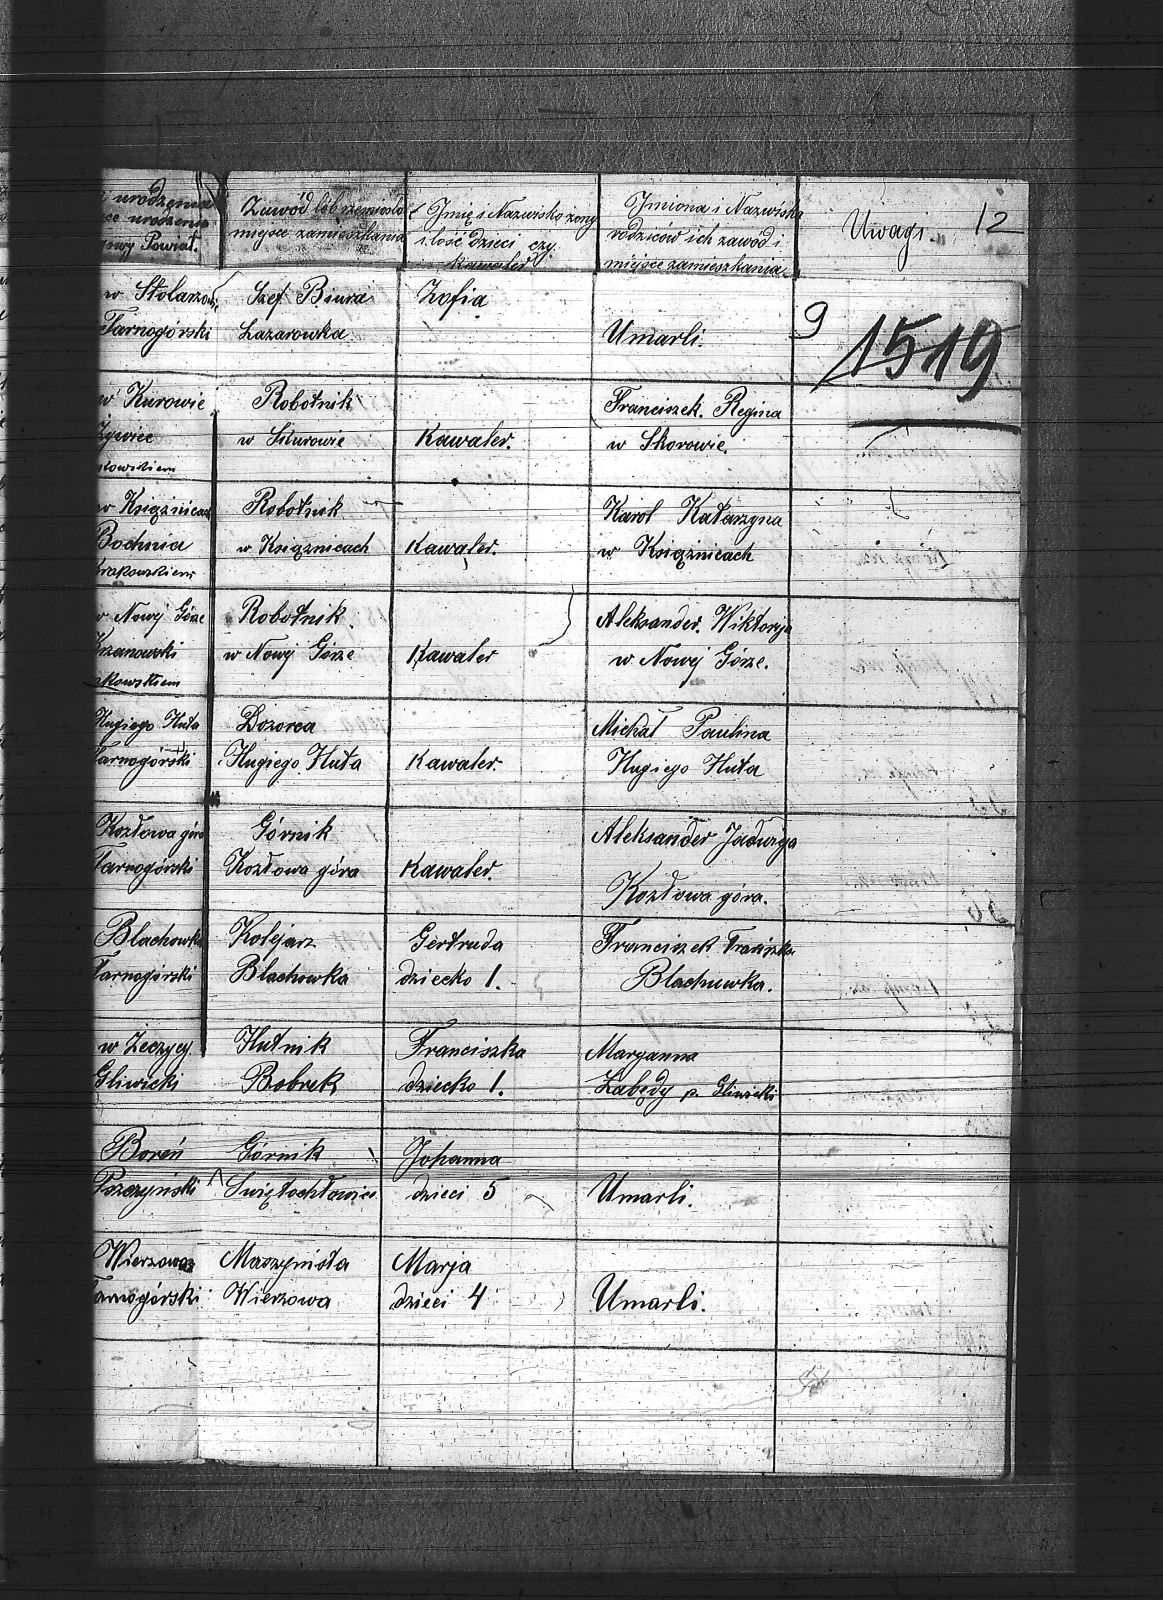 urodzenia
urodzenia
Powiat.
Zawód lub rzemiosło
miejsce zamieszkania
Imię i Nazwisko żony
ilość dzieci czy
Kawaler
Imiona i Nazwiska
rodziców ich zawód i
miejsce zamieszkania
Uwagi. 12
w Stolarzo
Tarnogórski
Szef Biura
Łazarowka
Zofia
Umarli.
9
1519
w Kurowie
Żywiec
Robotnik
w Skurowie
Kawaler.
Franciszek. Regina
w Skorowie.
w Książnicach
Bochnia
Krakowskiem
Robotnik
w Książnicach
Kawaler.
Karol Katarzyna
w Książnicach
w Nowej Górze
Krzanowski
akowskiem
Robotnik.
w Nowej Górze
Kawaler
Aleksander. Wiktorja
w Nowej Górze.
Hugiego Huta
Tarnogórski
Dozorca
Hugiego Huta
Kawaler.
Michał Paulina
Hugiego Huta
Kozłowa góra
Tarnogórski
Górnik
Kozłowa góra
Kawaler.
Aleksander Jadwiga
Kozłowa góra.
Blachowka
Tarnogórski
Kolejarz
Blachowka
Gertruda
dziecko 1.
Franciszek Franciszka
Blachuwka.
w Zeczycy
Gliwicki
Hutnik
Bobrek
Franciszka
dziecko 1.
Maryanna
Łabędy p. Gliwicki
Boreń
Pszczyński
Górnik
Świętochłowice
Johanna
dzieci 5
Umarli.
Wierzowa
Tarnogórski
Maszynista
Wierzowa
Marja
dzieci 4
Umarli.